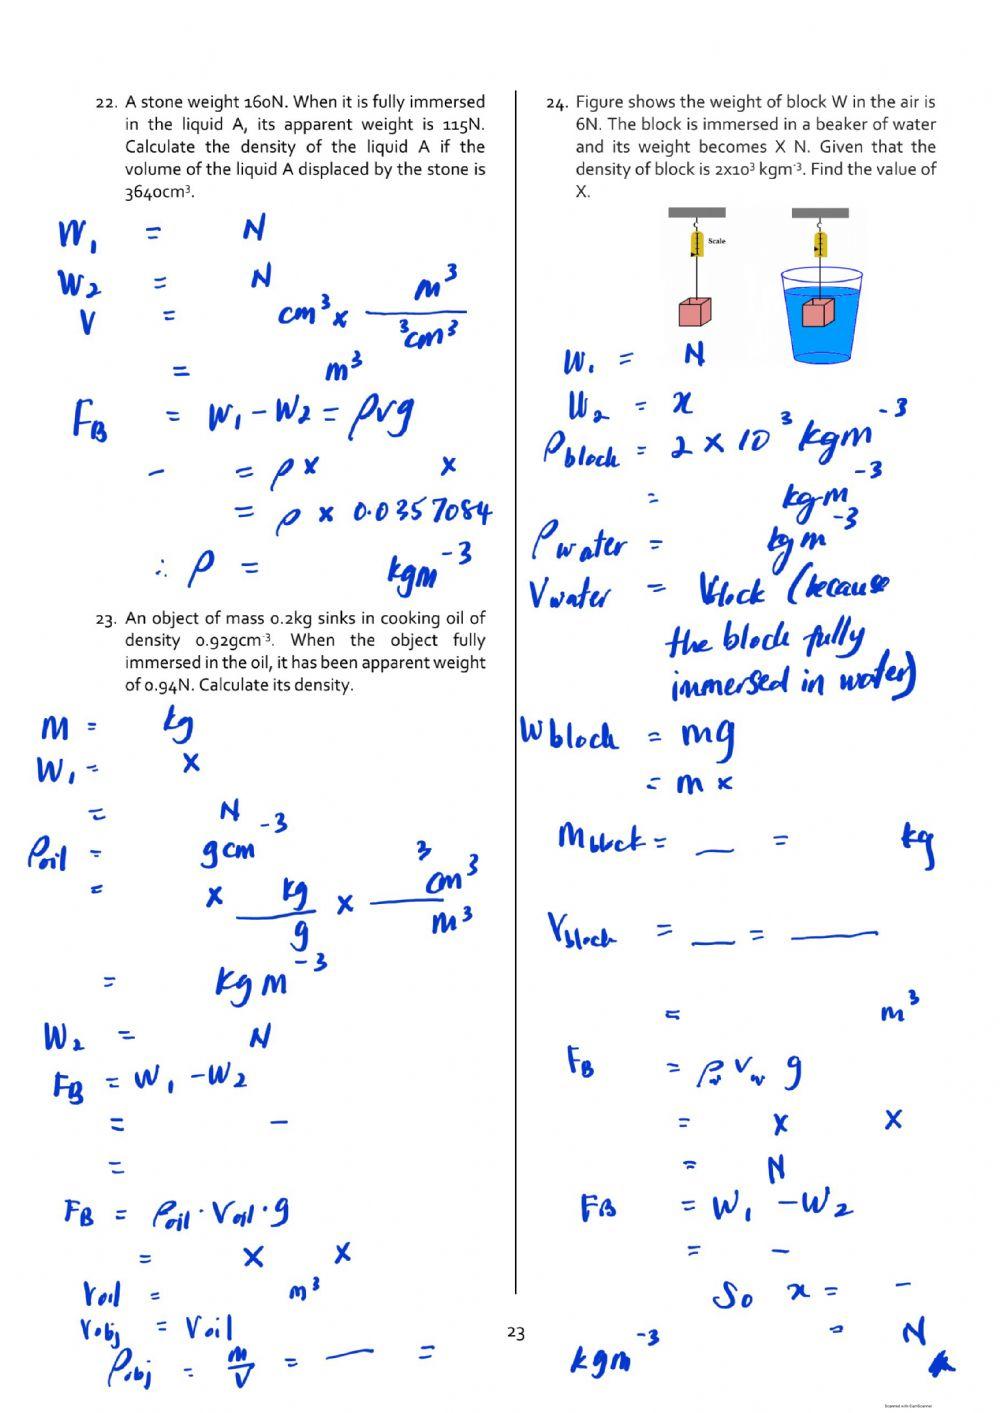 22. A stone weight 160N. When it is fully immersed
in the liquid A, its apparent weight is 115N.
Calculate the density of the liquid A if the
volume of the liquid A displaced by the stone is
3640cm³.
W₁ = N
W₂ = N
V = cm³ x m³ / ³cm³
= m³
F_B = W₁ - W₂ = ρvg
- = ρ x x
= ρ x 0.0357084
∴ ρ = kgm⁻³
23. An object of mass 0.2kg sinks in cooking oil of
density 0.92gcm⁻³. When the object fully
immersed in the oil, it has been apparent weight
of 0.94N. Calculate its density.
M = kg
W₁ = x
= N
ρoil = gcm⁻³
= x kg / g x ³cm³ / m³
= kgm⁻³
W₂ = N
F_B = W₁ - W₂
= -
=
F_B = ρoil · Voil · g
= x x
Voil = m³
Vobj = Voil
ρobj = m/V = — = kgm⁻³
24. Figure shows the weight of block W in the air is
6N. The block is immersed in a beaker of water
and its weight becomes X N. Given that the
density of block is 2x10³ kgm⁻³. Find the value of
X.
Scale
W₁ = N
W₂ = x
ρblock = 2 x 10³ kgm⁻³
= kgm⁻³
ρwater = kgm⁻³
Vwater = Vblock (because
the block fully
immersed in water)
Wblock = mg
= m x
Mblock = — = kg
Vblock = — = —
= m³
F_B = ρw Vw g
= x x
= N
F_B = W₁ - W₂
= -
So x = -
= N
23
Scanned with CamScanner